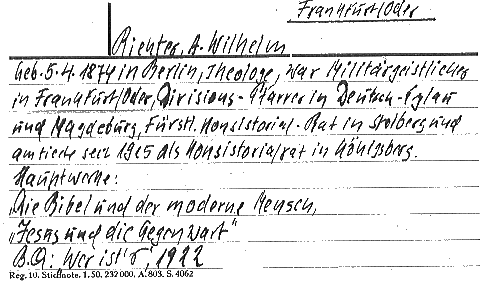 Frankfurt/Oder
Richter, A. Wilhelm
Geb. 5.4.1874 in Berlin, Theologe, war Militärgeistlicher
in Frankfurt/Oder, Divisions-Pfarrer in Deutsch-Eylau
und Magdeburg, Fürstl. Konsistorial-Rat in Stolberg und
amtierte seit 1925 als Konsistorialrat in Königsberg.
Hauptwerke:
„Die Bibel und der moderne Mensch,
„Jesus und die Gegenwart"
B.Q: Wer ist's, 1922
Reg. 10. Stichnote. 1.50. 232000. A. 803. S. 4062